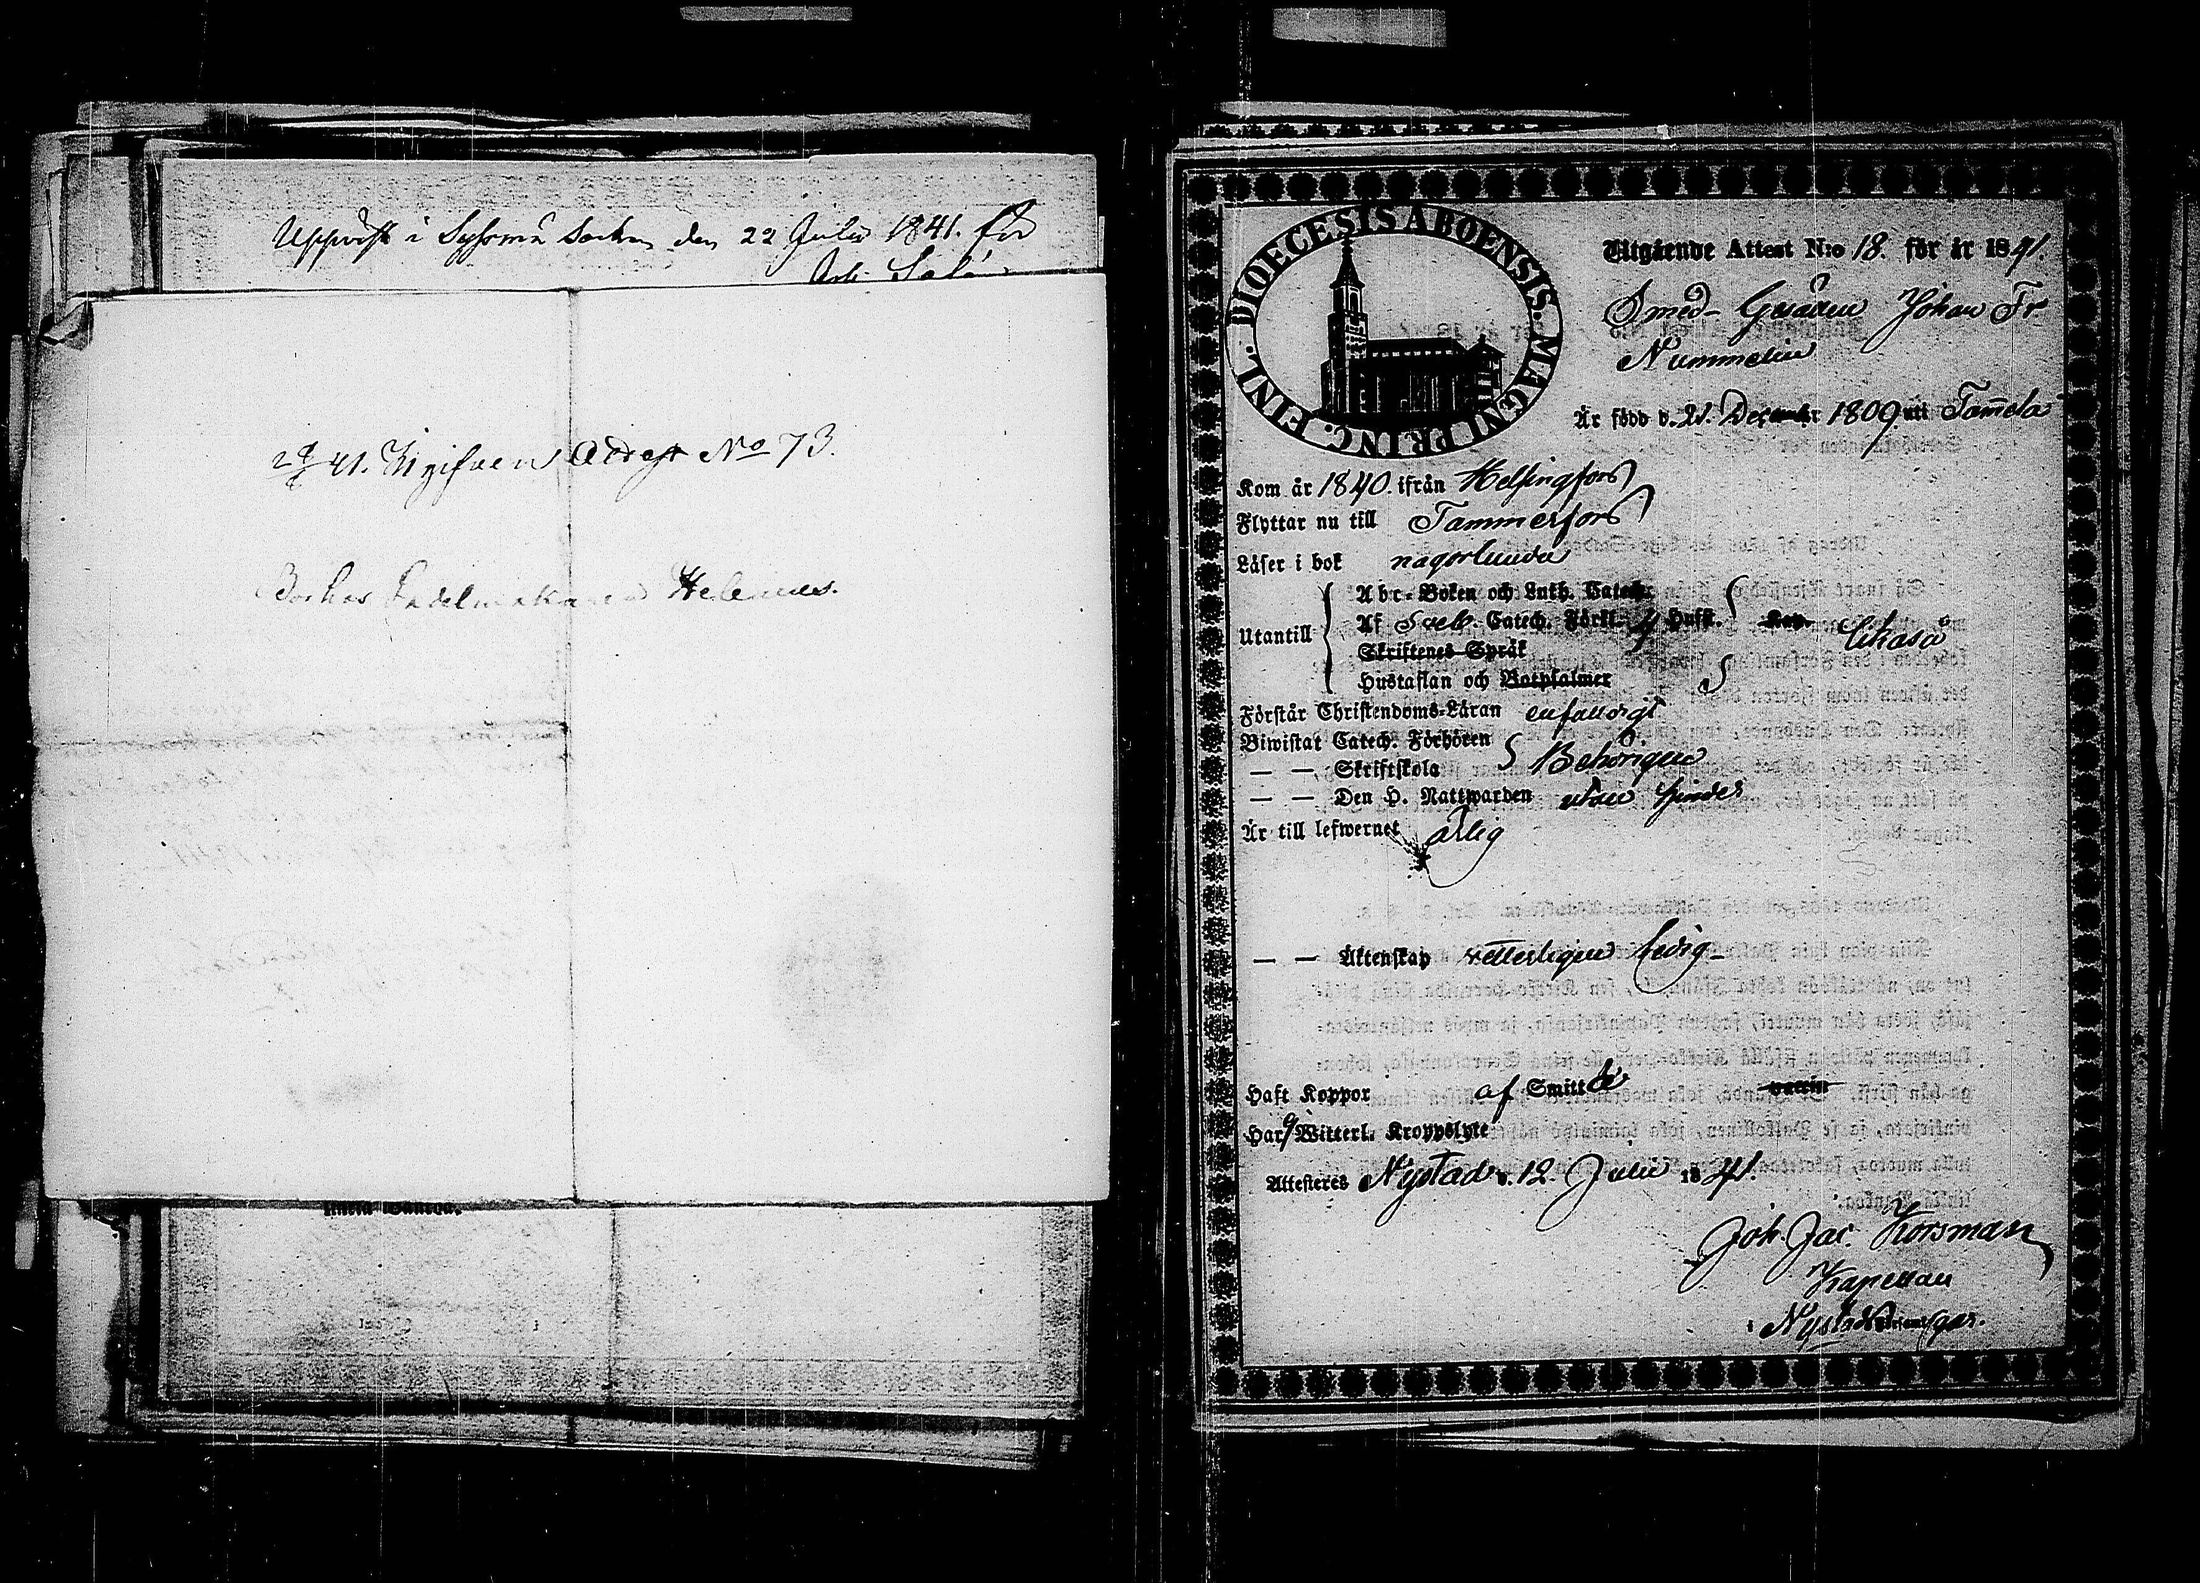 Uppvist i Sysmä Socken den 22 Julii 1841. för
Joh. Salén
41. Ingifven Attest No 73.
Helenius.
DIOECESIS ABOENSIS. MAGNI PRINC. FINL.
Utgående Attest N:o 18. för år 1841.
Smed-Gesällen Johan Fr
Nummelin
Är född d. 21. December 1809 uti Tam̄ela
Kom år 1840. ifrån Helsingfors
Flyttar nu till Tammerfors
Läser i bok någorlunda
Utantill
Abc-Boken och Luth. Catech.
Af Sveb. Catech. Förkl. Hust. Kap. likaså
Skriftenes Språk
Hustaflan och Botpsalmer
Förstår Christendoms-Läran enfaldigt
Biwistat Catech. Förhören
— — Skriftskola Behörigen
— — Den H. Nattwarden utan hinder
Är till lefwernet ärlig
— — Äktenskap vetterligen ledig
Haft Koppor af Smitta waccin
Har Witterl. Kroppslyte
Attesteres Nystad d. 12. Julii 1841.
Joh. Jac. Korsman
Kapellan
i Nystad